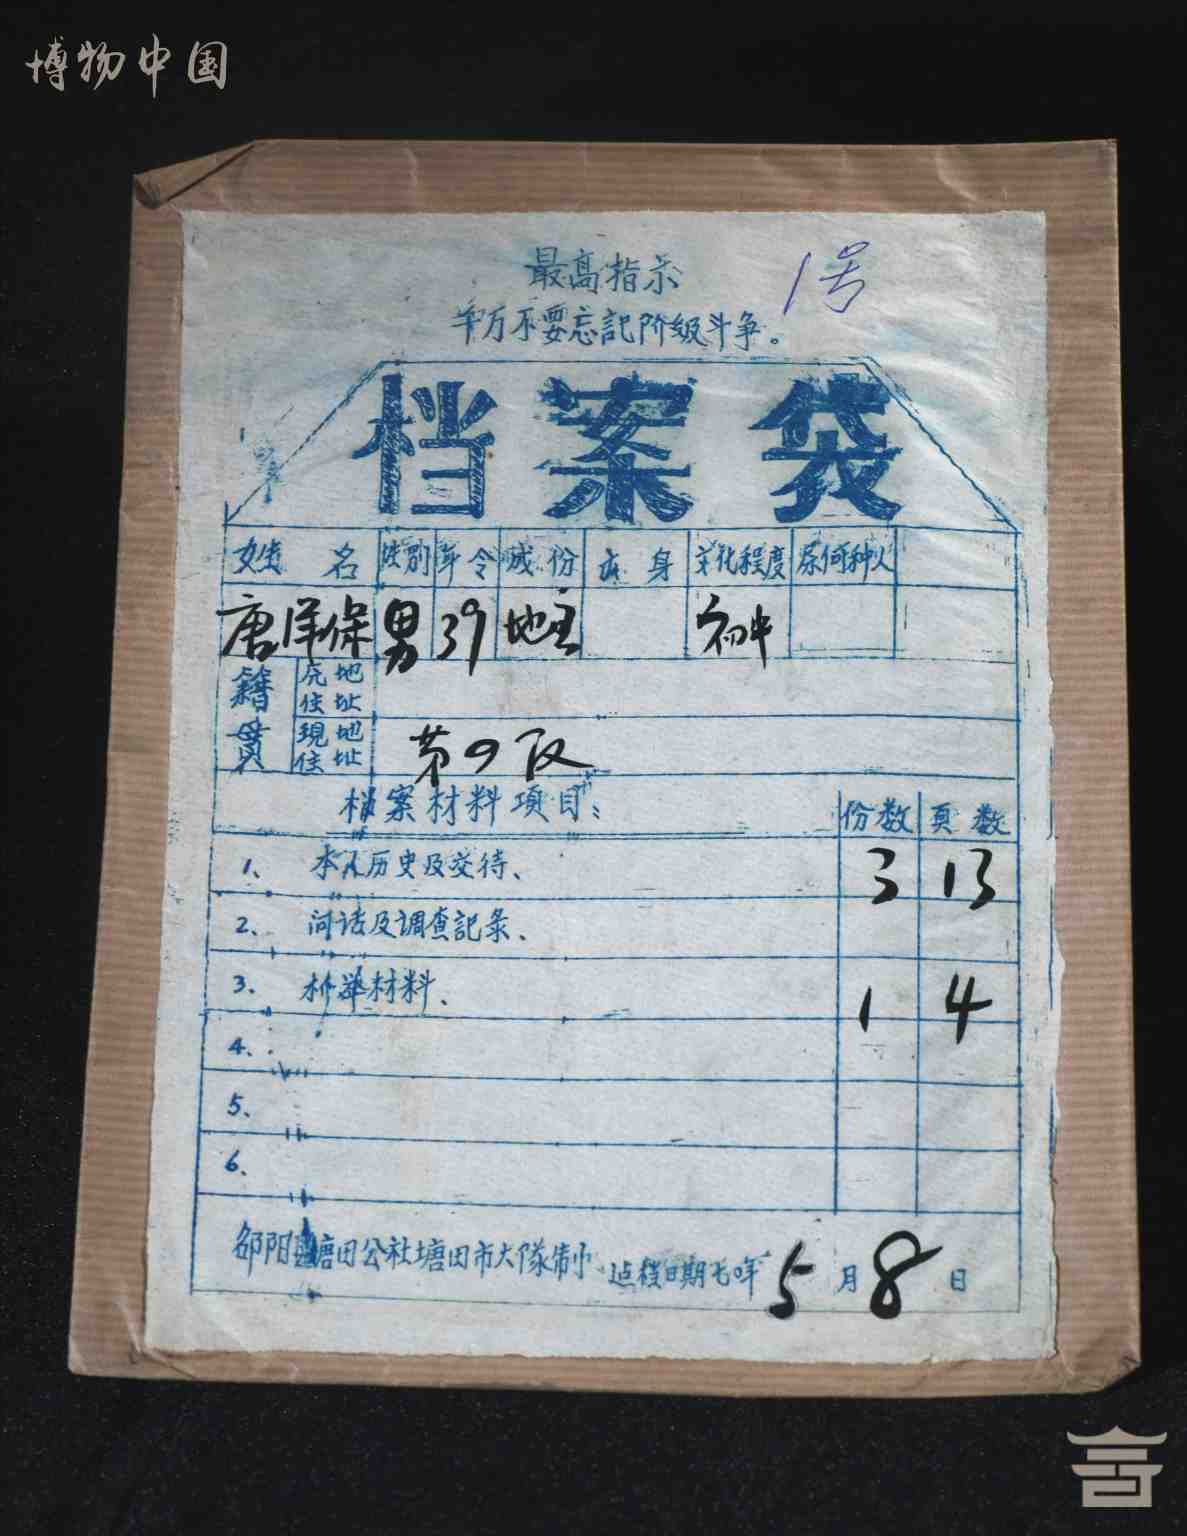 博物中国
1号
最高指示
千万不要忘記阶级斗争。
档案袋
姓名 性别 年令 成份 出身 文化程度 系何种人
唐洋保 男 39 地主 初中
籍貫
原住地址
現住地址 第9队
档案材料項目: 份数 頁数
1、本人历史及交待、 3 13
2、问话及調查記录、
3、材料、 1 4
4、
5、
6、
邵阳县塘田公社塘田市大隊制 造档日期七〇年5月8日